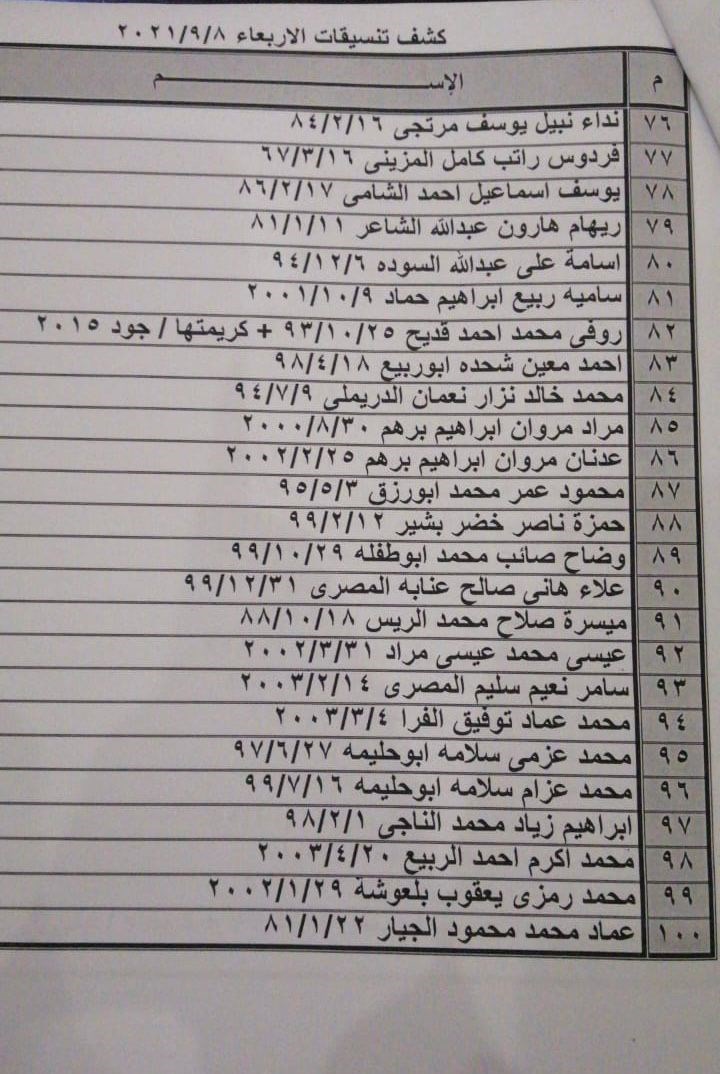 كشف تنسيقات الاربعاء ٢٠٢١/٩/٨
م الإســـــــــــــم
٧٦ نداء نبيل يوسف مرتجى ٨٤/٢/١٦
٧٧ فردوس راتب كامل المزينى ٦٧/٣/١٦
٧٨ يوسف اسماعيل احمد الشامى ٨٦/٢/١٧
٧٩ ريهام هارون عبدالله الشاعر ٨١/١/١١
٨٠ اسامة على عبدالله السوده ٩٤/١٢/٦
٨١ ساميه ربيع ابراهيم حماد ٢٠٠١/١٠/٩
٨٢ روفى محمد احمد قديح ٩٣/١٠/٢٥ + كريمتها / جود ٢٠١٥
٨٣ احمد معين شحده ابوربيع ٩٨/٤/١٨
٨٤ محمد خالد نزار نعمان الدريملى ٩٤/٧/٩
٨٥ مراد مروان ابراهيم برهم ٢٠٠٠/٨/٣٠
٨٦ عدنان مروان ابراهيم برهم ٢٠٠٢/٢/٢٥
٨٧ محمود عمر محمد ابورزق ٩٥/٥/٣
٨٨ حمزة ناصر خضر بشير ٩٩/٢/١٢
٨٩ وضاح صائب محمد ابوطفله ٩٩/١٠/٢٩
٩٠ علاء هانى صالح عنابه المصرى ٩٩/١٢/٣١
٩١ ميسرة صلاح محمد الريس ٨٨/١٠/١٨
٩٢ عيسى محمد عيسى مراد ٢٠٠٢/٣/٣١
٩٣ سامر نعيم سليم المصرى ٢٠٠٣/٢/١٤
٩٤ محمد عماد توفيق الفرا ٢٠٠٣/٣/٤
٩٥ محمد عزمى سلامه ابوحليمه ٩٧/٦/٢٧
٩٦ محمد عزام سلامه ابوحليمه ٩٩/٧/١٦
٩٧ ابراهيم زياد محمد الناجى ٩٨/٢/١
٩٨ محمد اكرم احمد الربيع ٢٠٠٣/٤/٢٠
٩٩ محمد رمزى يعقوب بلعوشة ٢٠٠٢/١/٢٩
١٠٠ عماد محمد محمود الجيار ٨١/١/٢٢